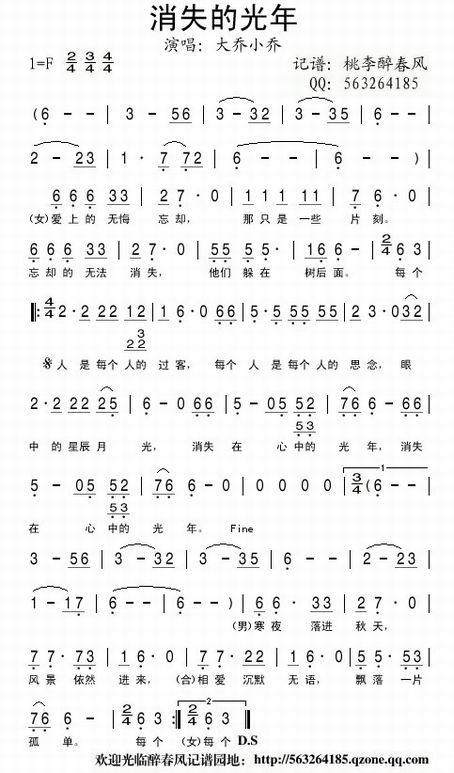 消失的光年
演唱：大乔小乔
1=F 2/4 3/4 4/4 记谱：桃李醉春风
QQ：563264185
(6 - - | 3 - 56 | 3 - 32 | 3 - 35 | 6 - - |
2 - 23 | 1 · 7 72 | 6 - - | 6 - - ) |
6 6 6 33 | 2 7 · 0 | 1 1 1 11 | 7 6 · 0 |
(女)爱上的无悔 忘却， 那只是一些 片刻。
6 6 6 33 | 2 7 · 0 | 55 55 5 · | 166 - | 2/4 6 3 |
忘却的无法 消失， 他们 躲在 树后面。 每个
‖: 4/4 2 · 2 22 12 | 1 6 · 0 66 | 5 · 5 55 55 | 2 3 · 0 32 |
22 3
人 是每个 人的 过客， 每个 人 是每个人的 思念，眼
2 · 2 22 25 | 6 - 0 66 | 5 - 05 52 | 76 6 - 66 |
53
中 的星辰月 光， 消失 在 心中的 光 年，消失
5 - 05 52 | 76 6 - 0 | 0 0 0 0 | 1 3/4 (6 - - |
53
在 心中的 光 年。 Fine
3 - 56 | 3 - 32 | 3 - 35 | 6 - - | 2 - 23 |
1 - 17 | 6 - - | 6 - - ) | 66 · 33 | 2 7 · 0 |
(男)寒夜 落进 秋天，
7 7 · 73 | 1 6 · 0 | 7 7 · 22 | 1 6 · 0 | 5 5 · 53 |
风景 依然 进来， (合)相爱 沉默 无语， 飘落 一片
76 6 - | 2/4 6 3 :‖ 2 2/4 6 3 ‖
孤 单。 每个 (女)每个 D.S
欢迎光临醉春风记谱园地：http://563264185.qzone.qq.com